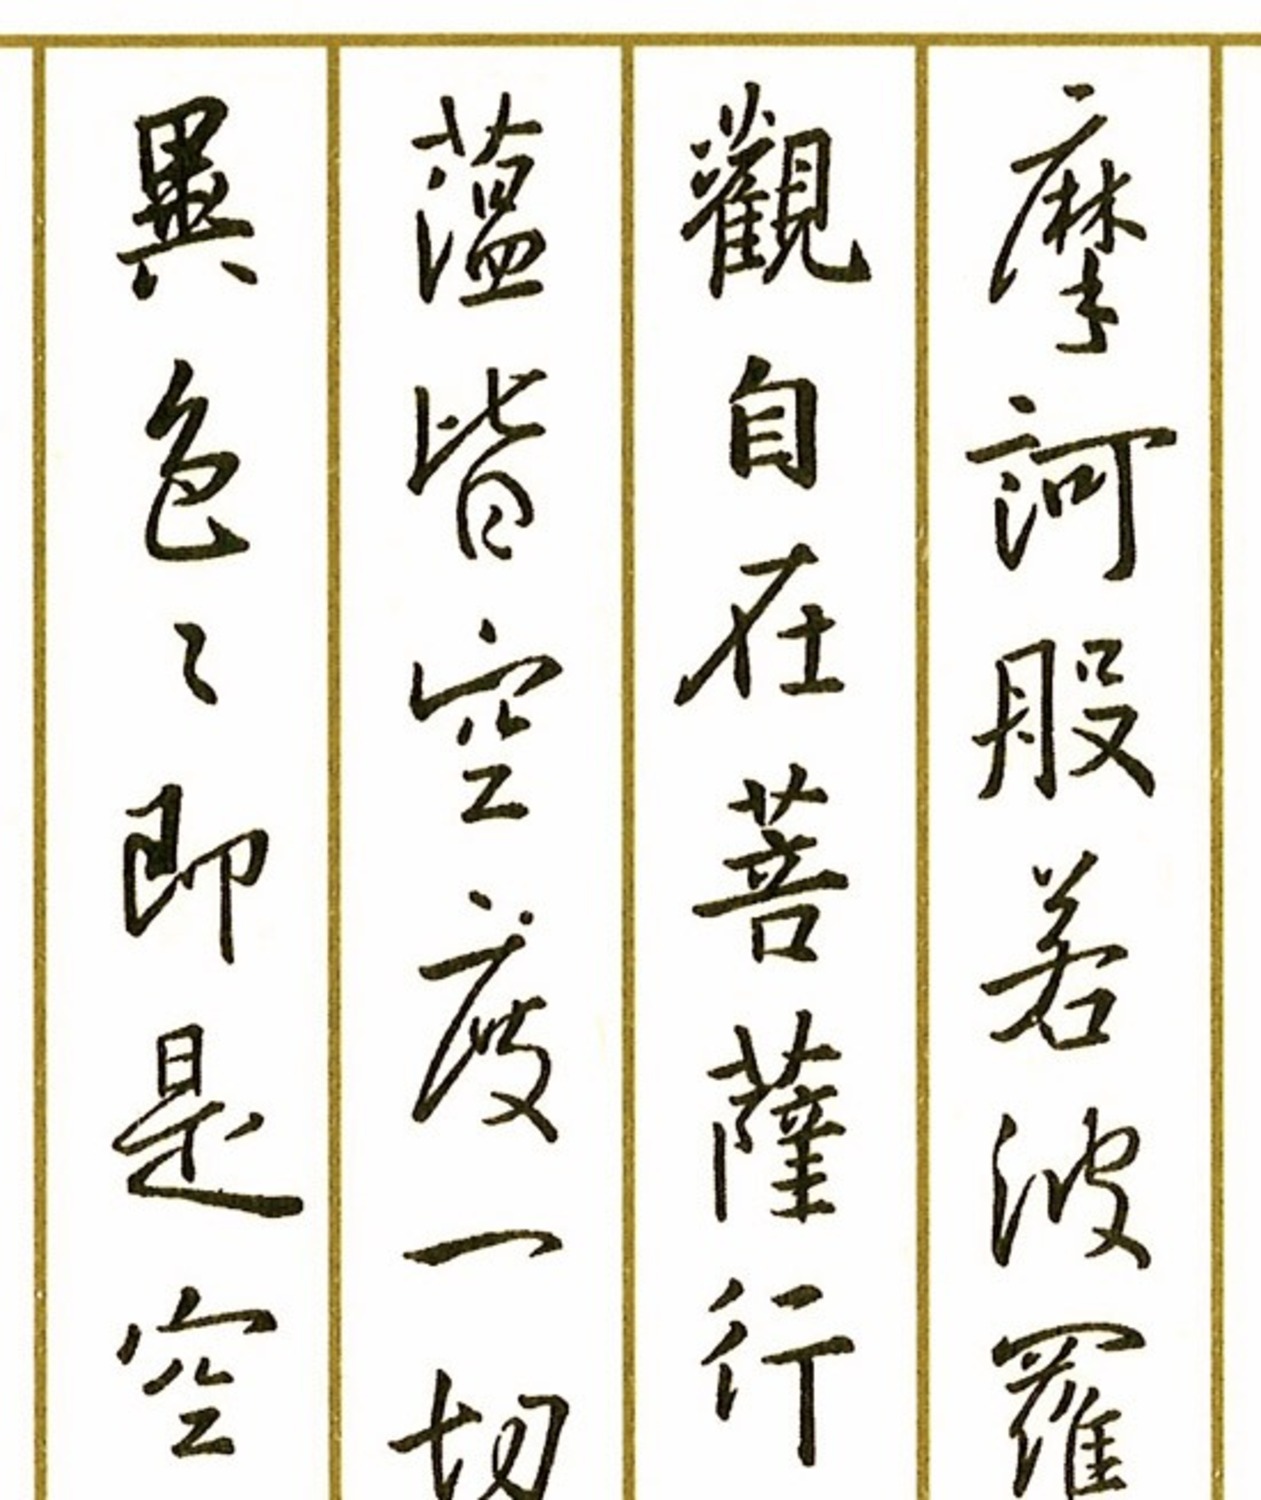 摩訶般若波羅
觀自在菩薩行
蘊皆空度一切
異色々即是空